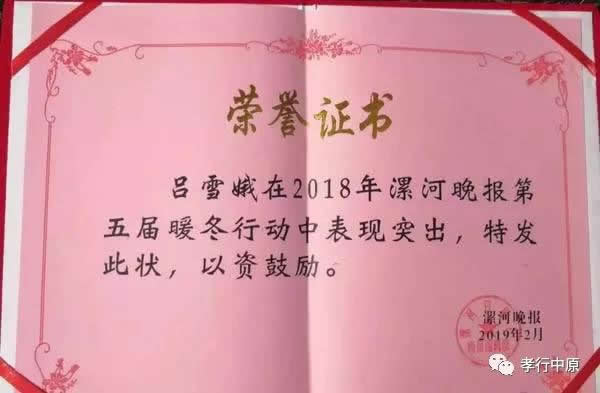 荣誉证书
吕雪娥在2018年漯河晚报第
五届暖冬行动中表现突出，特发
此状，以资鼓励。
漯河晚报
2019年2月
孝行中原